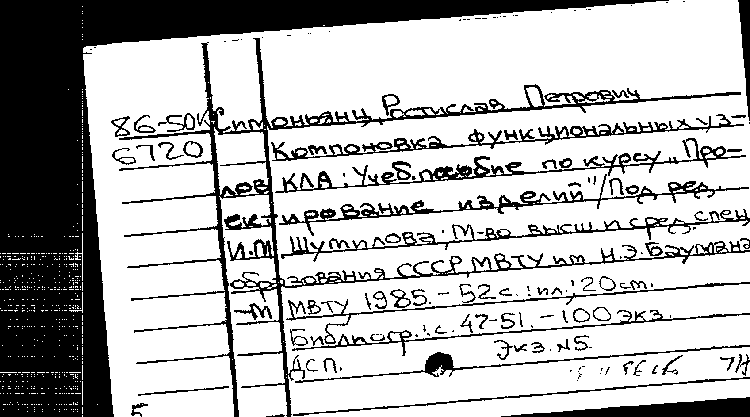 86-50К Симоньянц, Ростислав Петрович
6720 Компоновка функциональных уз-
лов КЛА: Учеб. пособие по курсу "Про-
ектирование изделий"/Под ред.
И.М. Шутилова; М-во высш и сред. спец
образования СССР, МВТУ им. Н.Э. Баумана
-М МВТУ, 1985. - 52 с.: ил.; 20 cm.
Библиогр.: с. 47-51. - 100 экз.
Экз. №5
ДСП.